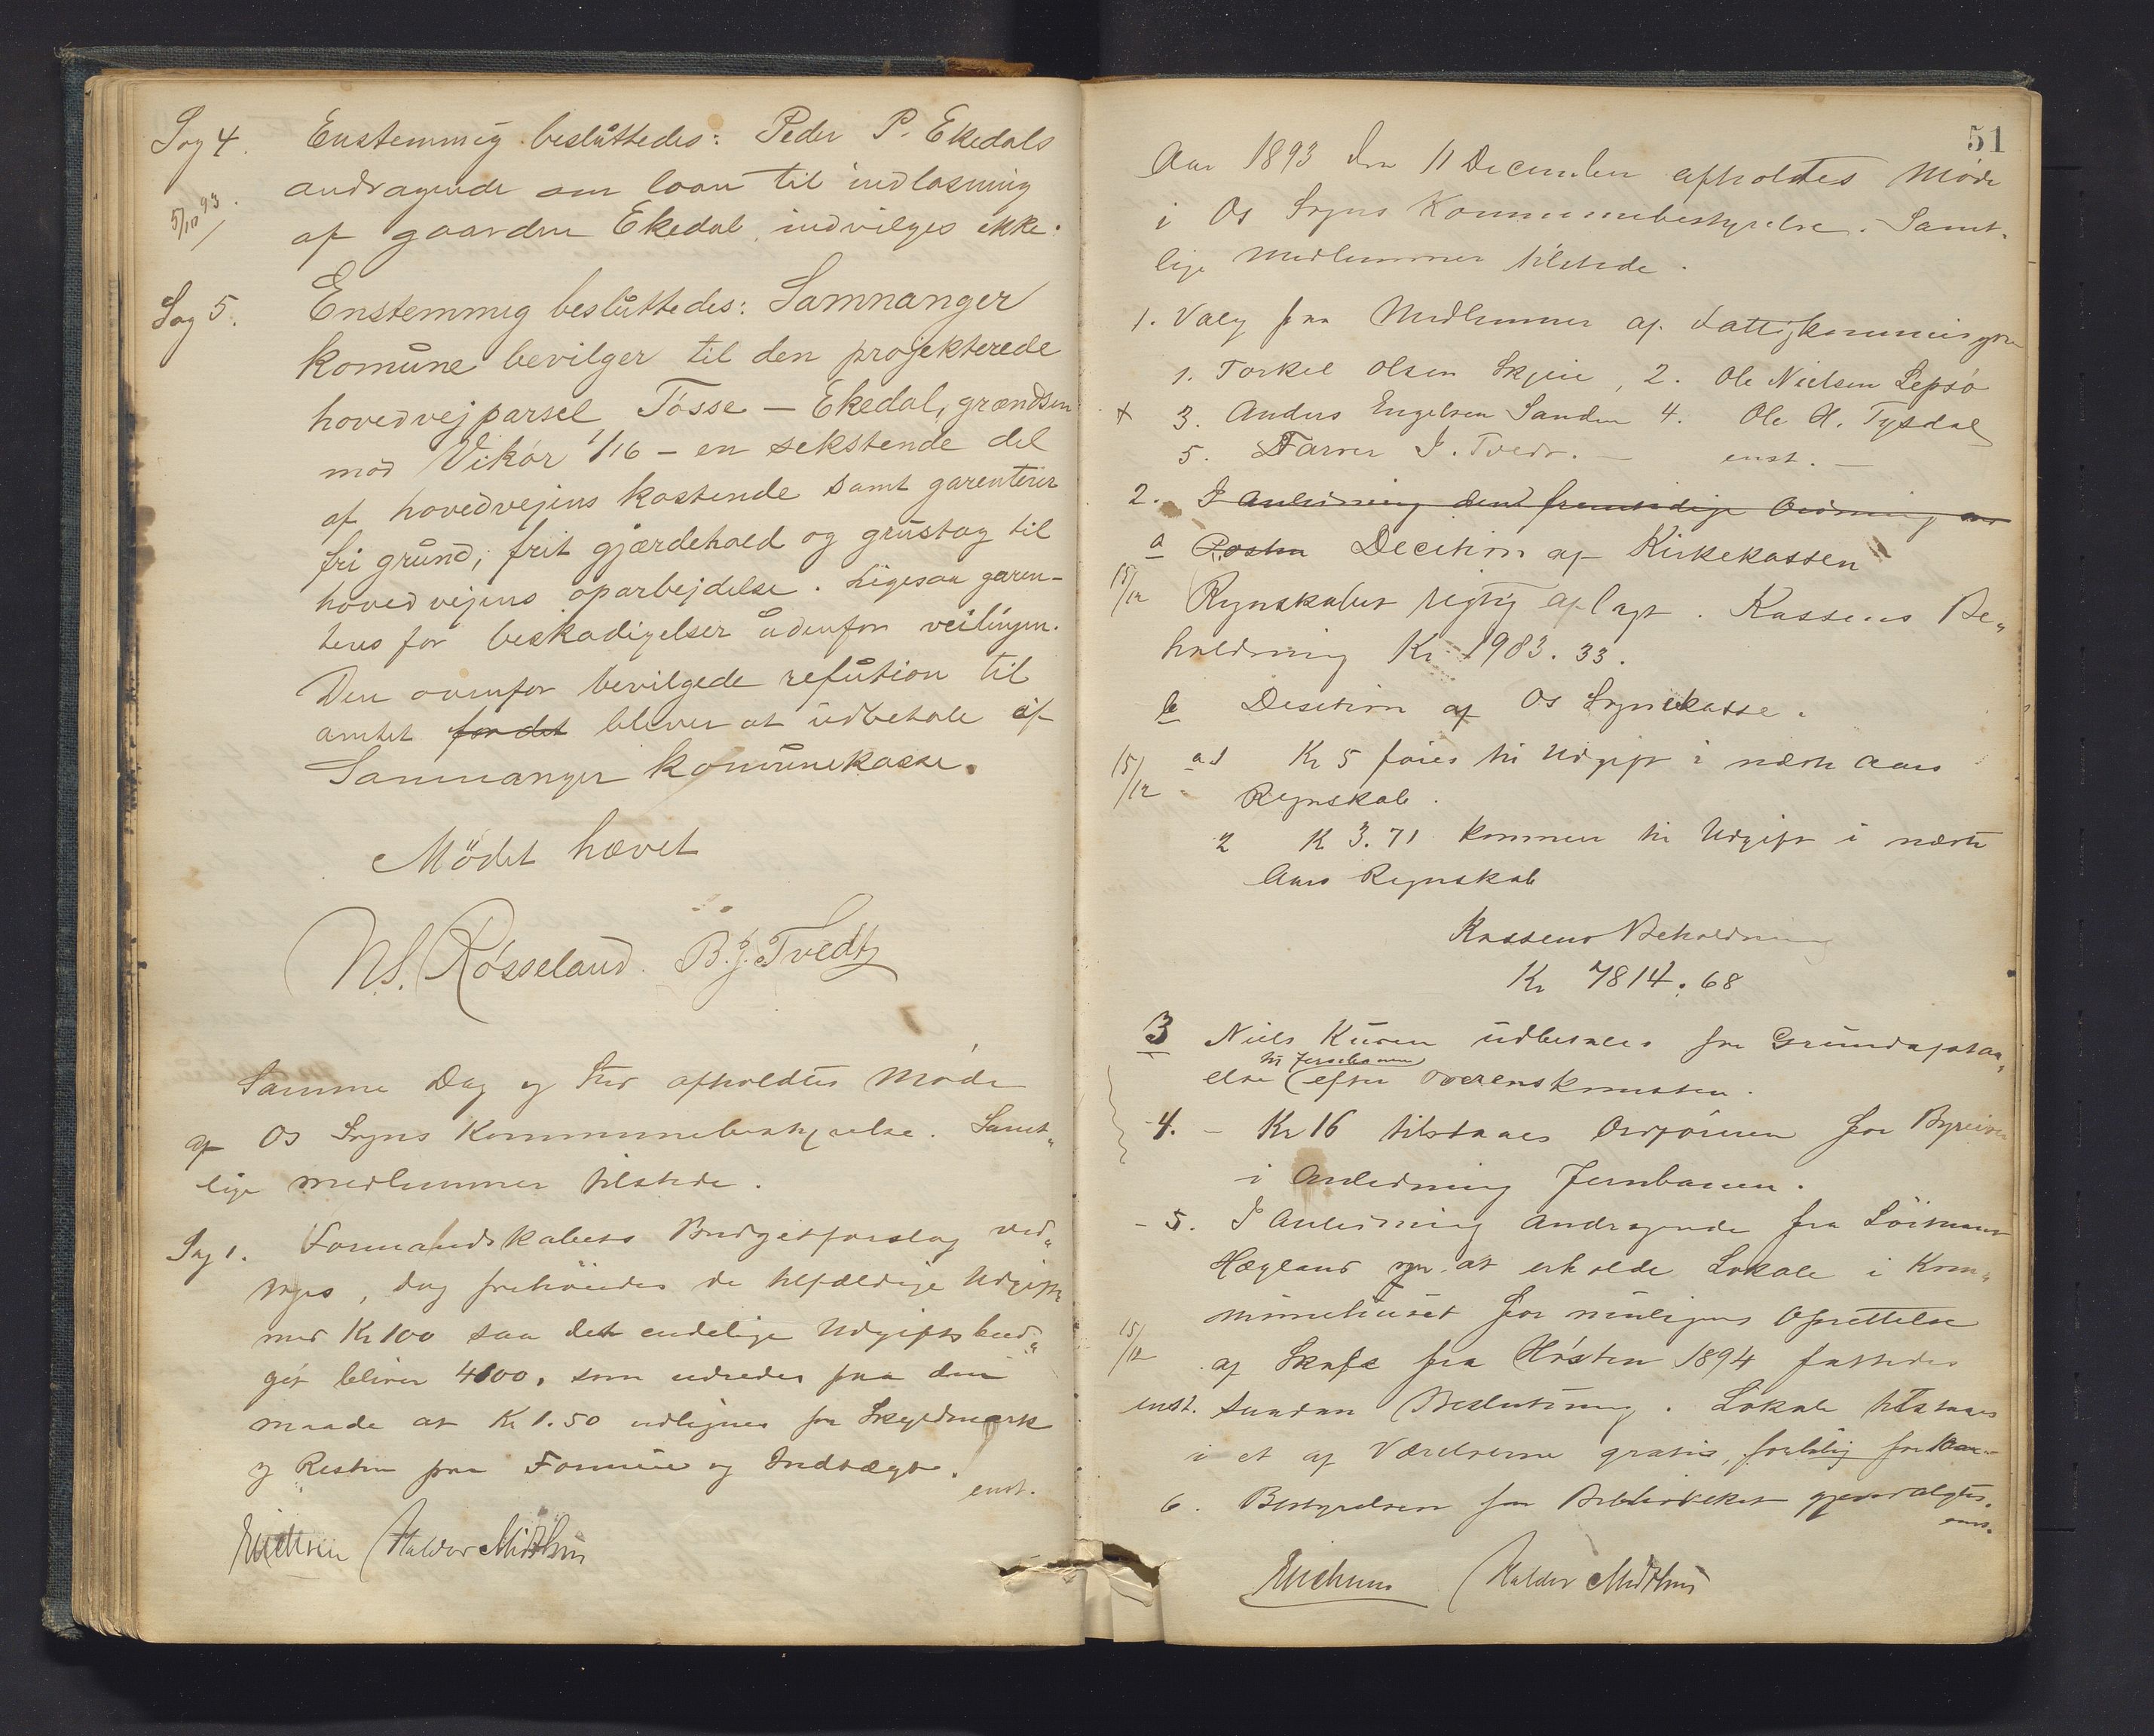 Sag 4. Enstemmig beslůttedes: Peder P. Ekedals
andragende om laan til indløsning
5/10 93. af gaarden Ekedal indvilges ikke.
Sag 5. Enstemmig beslůttedes: Samnanger
komůne bevilger til den projekterede
hovedvejparsel, Tøsse – Ekedal, grændsen
mod Vikør 1/16 – en sekstende del
af hovedvejens kostende samt garenterer
fri grůnd, frit gjærdehold og grůstag til
hovedvejens oparbejdelse. Ligesaa garen-
teres for beskadigelser ůdenfor veilinjen.
Den ovenfor bevilgede refůtion til
amtet for det bliver at ůdbetale af
Samnanger komůnekasse.
Mödet hævet
N.S. Røsseland. B.J. Tvedt
Samme Dag og Sted afholdtes Møde
af Os Sogns Kommunebestyrelse. Samt„
lige medlemmer tilstede.
Sag 1. Formandskabets Budgetforslag ved„
toges, dog forhöiedes de tilfældige Udgifter
med Kr 100 saa det endelige Udgiftsbud„
get bliver 4100, som udredes paa den
maade at Kr 1.50 udlignes pr Skyldmark
og Resten paa Formue og Indtægt.
enst.
Haldor Midthus
51
Aar 1893 den 11 December afholdtes Møde
i Os Sogns Kommunebestyrelse. Samt„
lige Medlemmer tilstede.
1. Valg paa Medlemmer af Fattigkommisjon
1. Torkel Olsen Skjeie, 2. Ole Nielsen Lepsö
x 3. Anders Engelsen Sanden 4. Ole H. Tysdal
5. Farver J. Tvedt. – enst. –
2. I Anledning den fremtidige Ordning av
a Posten Decition af Kirkekassen
15/12 Regnskabet rigtig aflagt. Kassens Be„
holdning Kr. 1983.33.
b Desition af Os Sognekasse.
15/12 ad 1 Kr 5 føies til Udgift i næste Aars
Regnskab.
2 K 3.71 kommer til Udgift i næste
Aars Regnskab
Kassens Beholdning
Kr 7814.68
3 Niels Kuven üdbetales for Grundafstaa„
til Jernbanen
else efter Overenskomsten.
4. – Kr 16 tilstaaes for
i Anledning Jernbanen.
– 5. I Anledning Andragende fra Löitnant
Hægland om at erholde Lokale i Kom„
munehuset for muligens Oprettelse
15/12 af Skole fra Høsten 1894 fattedes
enst. saadan Beslutning. Lokale tilstaaes
i et af Værelserne gratis,
6. Bestyrelsen for Bibliotheket gjenvalgtes.
enst.
Haldor Midthus